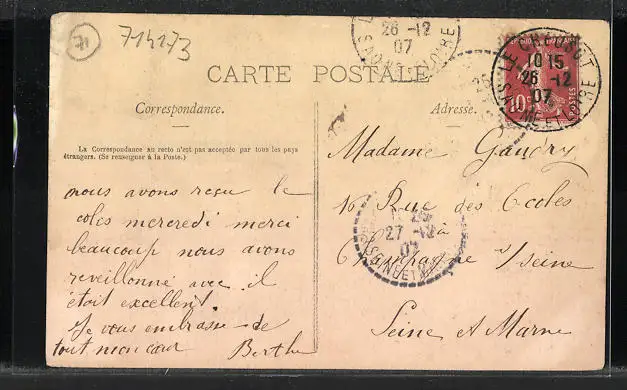 71
714173
26 -12
07
SAONE-ET-LOIRE
LE CREUSOT
10 15
26 -12
07
SAONE-ET-LOIRE
10c
POSTES
CARTE POSTALE
Correspondance.
Adresse.
La Correspondance au recto n'est pas acceptée par tous les pays
étrangers. (Se renseigner à la Poste.)
nous avons reçu le
colis mercredi merci
beaucoup nous avons
reveillonné avec il
était excellent
Je vous embrasse de
tout mon cœur Berthe
Madame Gaudry
16 Rue des Ecoles
à
Champagne s/seine
Seine et Marne
27 -12
07
SEINE ET M